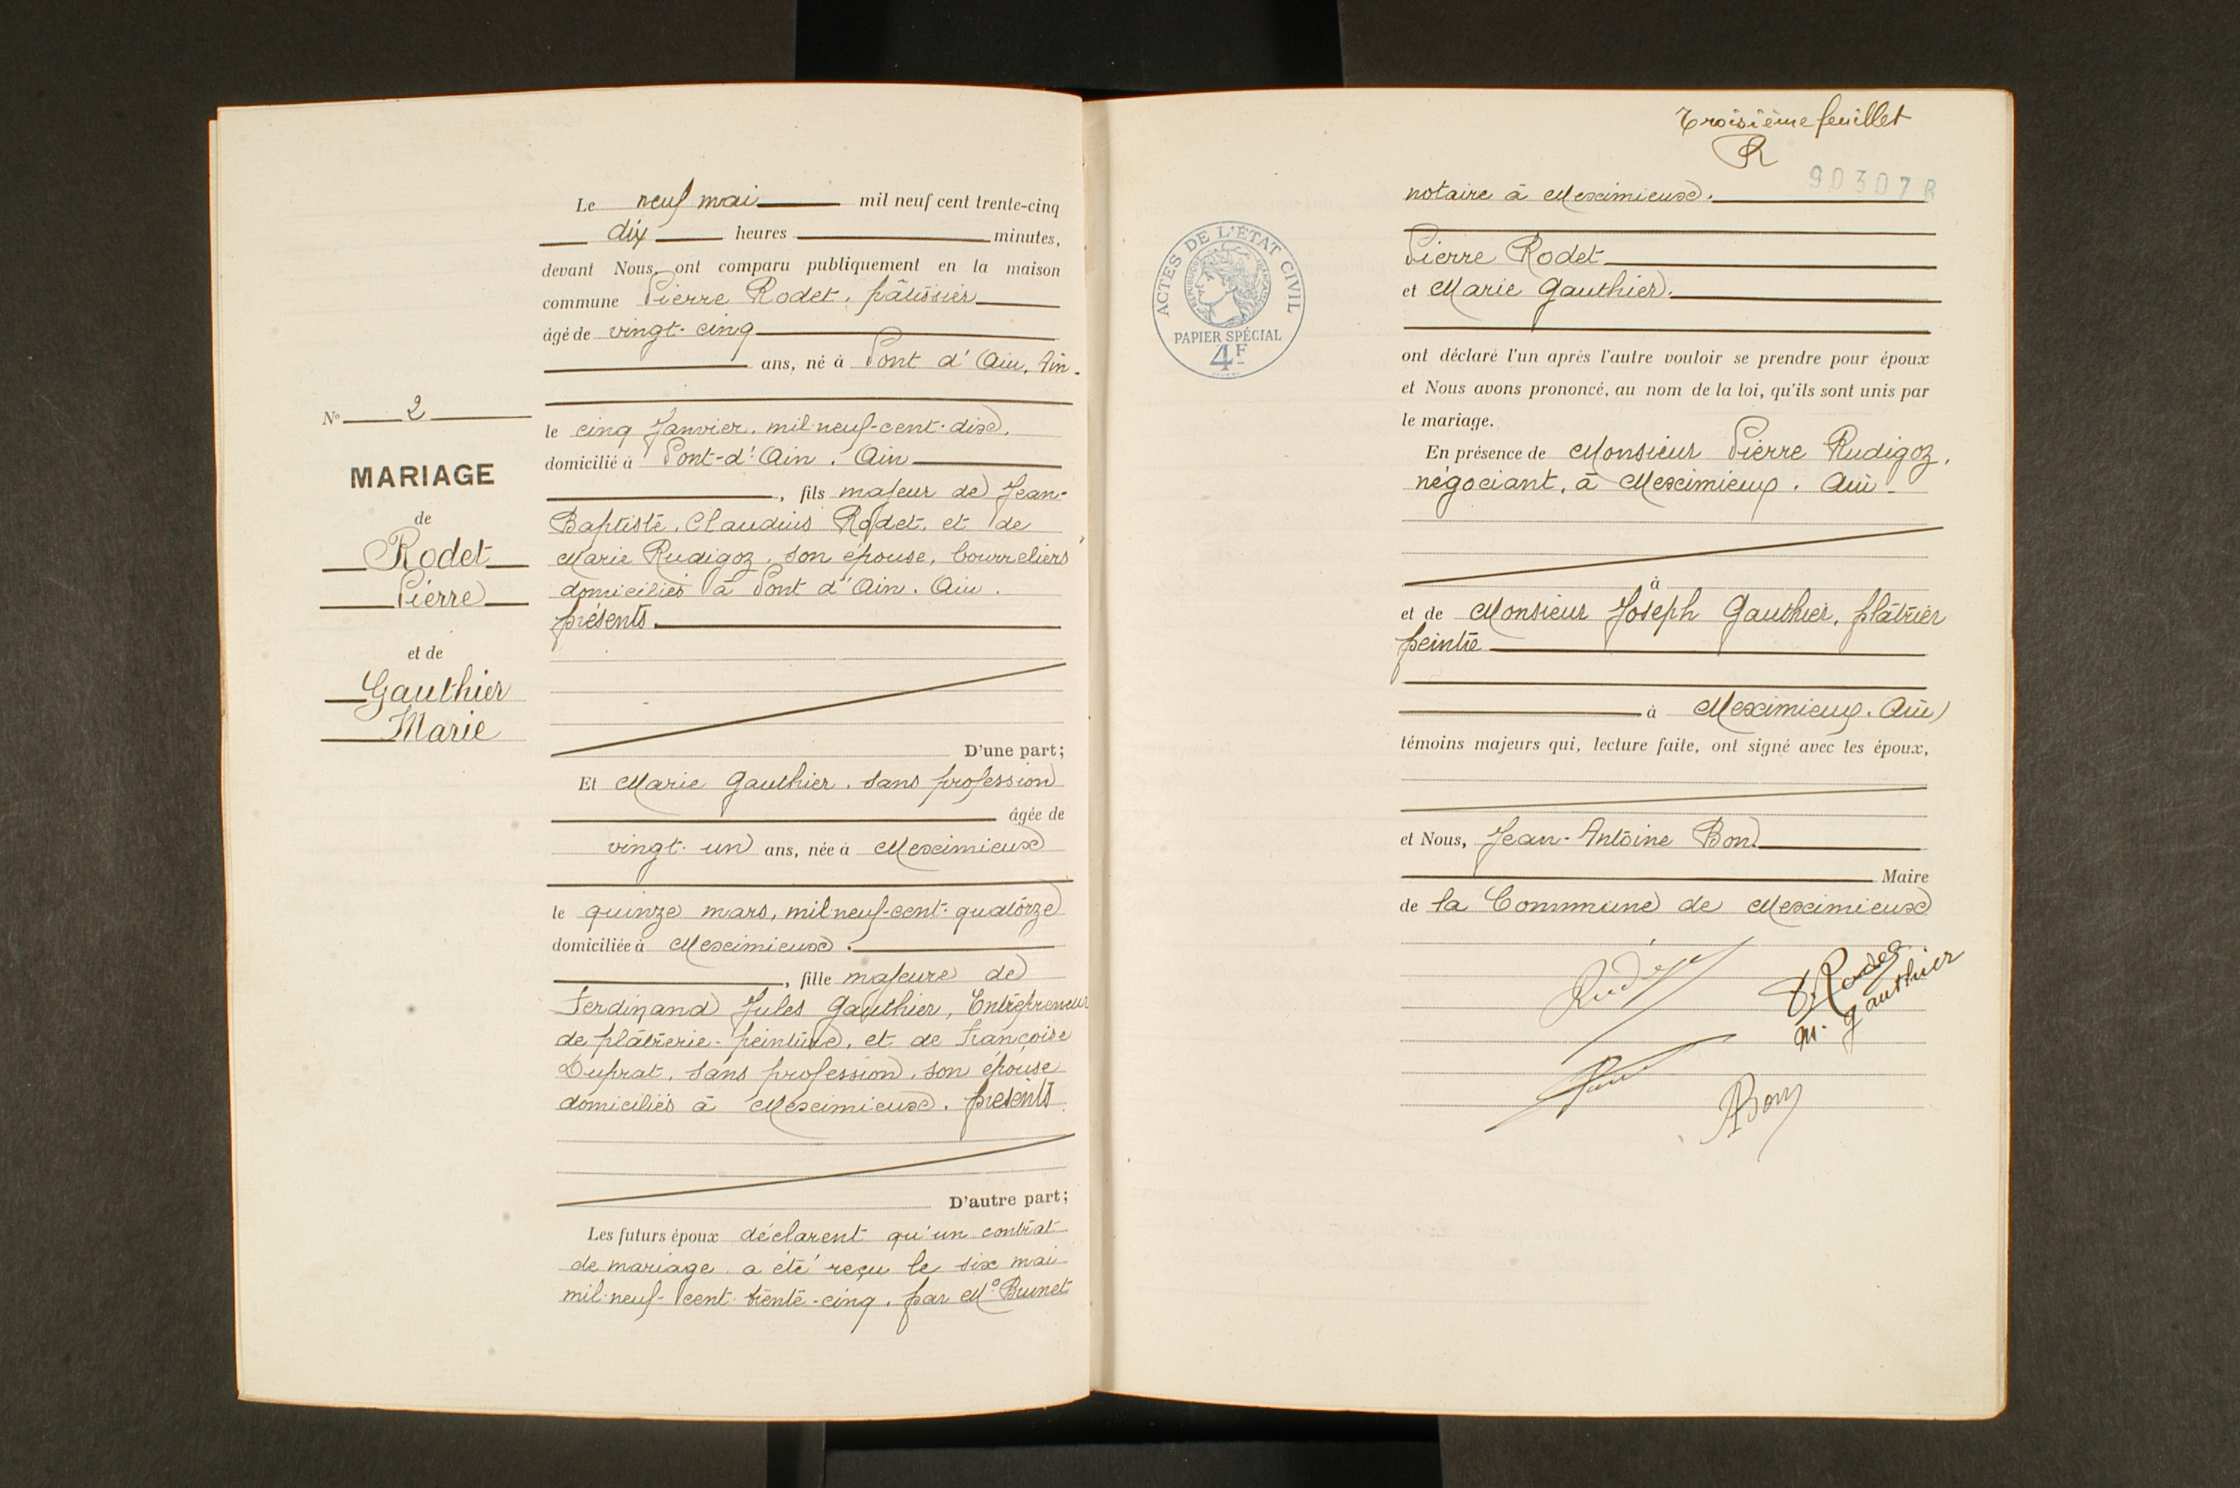 Le neuf mai mil neuf cent trente-cinq
dix heures minutes,
devant Nous, ont comparu publiquement en la maison
commune Pierre Rodet, pâtissier
âgé de vingt-cinq
ans, né à Pont d'Ain, Ain.
le cinq Janvier, mil-neuf-cent-dix,
domicilié à Pont-d'Ain. Ain
, fils majeur de Jean-
Baptiste, Claudius Rodet, et de
Marie Rudigoz, son épouse, bourreliers
domiciliés à Pont d'Ain. Ain.
présents.
D'une part;
Et Marie Gauthier, sans profession
âgée de
vingt-un ans, née à Meximieux
le quinze mars, mil neuf-cent-quatorze
domiciliée à Meximieux.
, fille majeure de
Ferdinand Jules Gauthier, Entrepreneur
de plâtrerie-peinture, et de Françoise
Duprat, sans profession, son épouse
domiciliés à Meximieux. présents.
D'autre part;
Les futurs époux déclarent qu'un contrat
de mariage a été reçu le six mai
mil-neuf-cent-trente-cinq, par Me Brunet
No 2
MARIAGE
de
Rodet
Pierre
et de
Gauthier
Marie
Troisième feuillet
R
90307 R
notaire à Meximieux.
ACTES DE L'ÉTAT CIVIL
RÉPUBLIQUE FRANÇAISE
PAPIER SPÉCIAL
4F
Pierre Rodet
et Marie Gauthier.
ont déclaré l'un après l'autre vouloir se prendre pour époux
et Nous avons prononcé, au nom de la loi, qu'ils sont unis par
le mariage.
En présence de Monsieur Pierre Rudigoz,
négociant, à Meximieux. Ain.
à
et de Monsieur Joseph Gauthier, plâtrier
peintre
à Meximieux. Ain
témoins majeurs qui, lecture faite, ont signé avec les époux,
et Nous, Jean-Antoine Bon.
Maire
de la Commune de Meximieux
P. Rodet
M. Gauthier
ABon